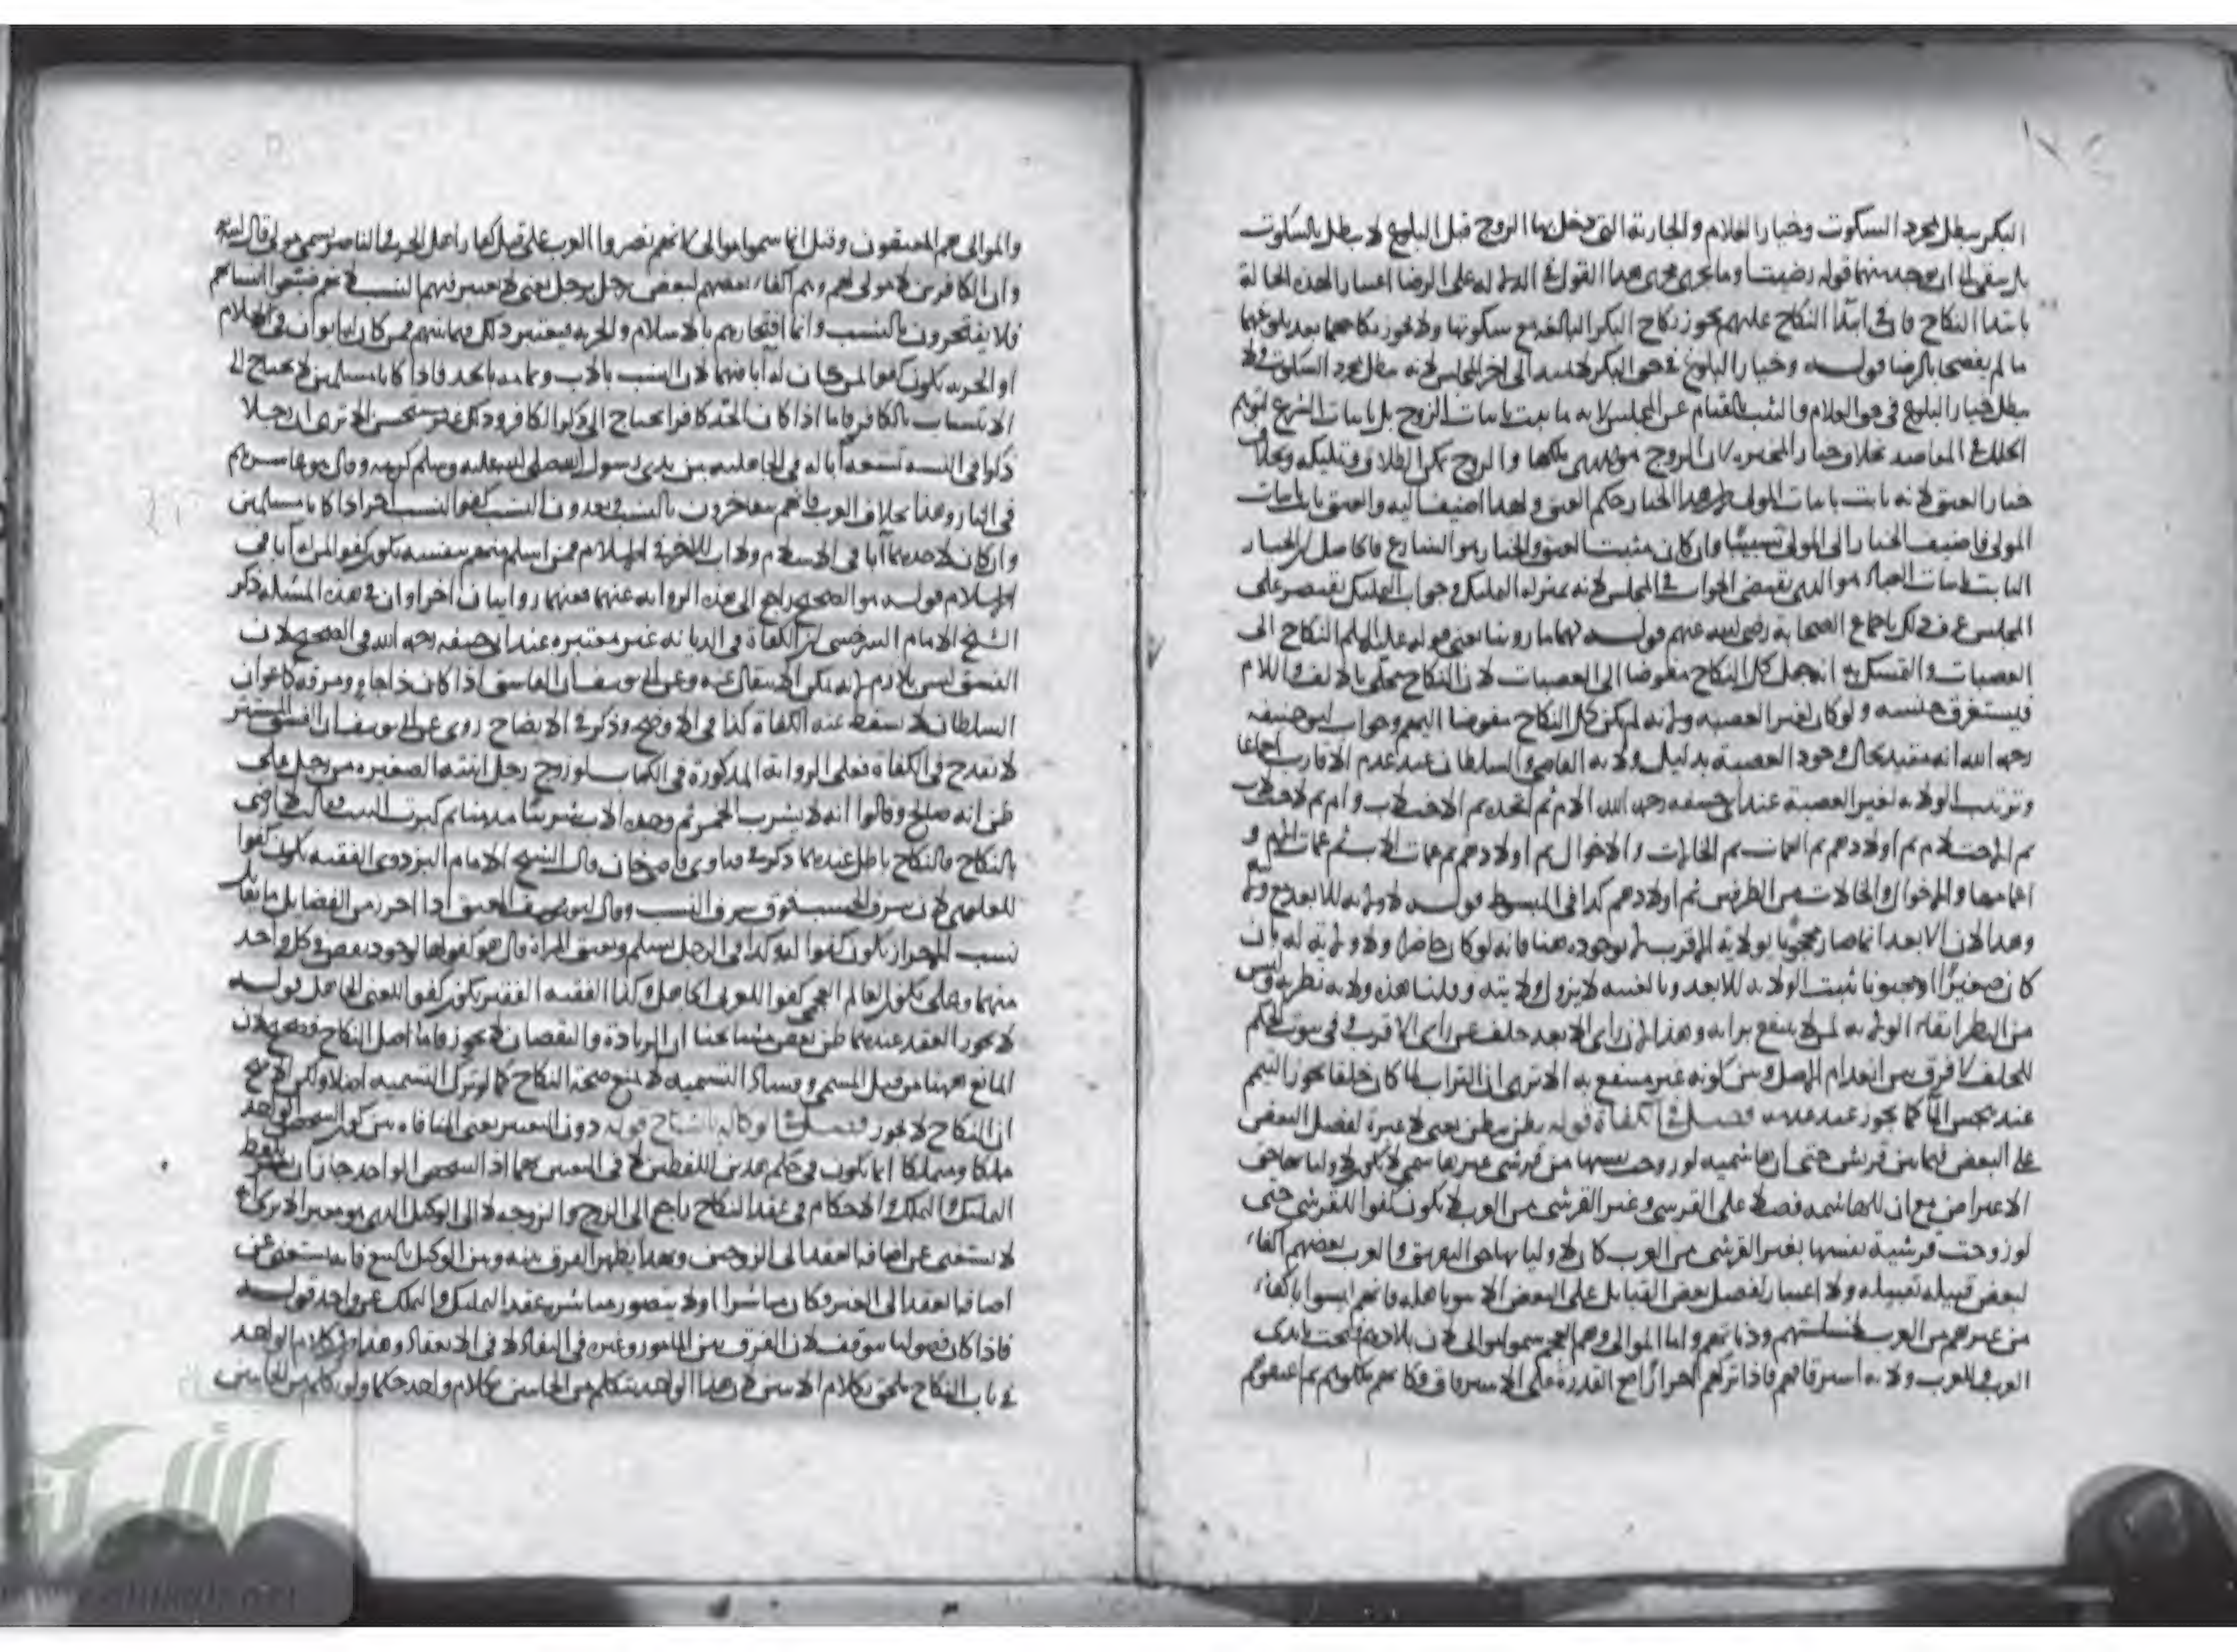 البكر يبطل بمجرد السكوت وخيار الغلام والجارية التي دخل بها الزوج قبل البلوغ لا يبطل بالسكوت
بل يبقى الى ان يوجد منهما قوله رضيت وما يجري مجرى هذا القول في الدلالة على الرضا اعتبارا لهذه الحالة
بابتدا النكاح فان في ابتدا النكاح عليهم يجوز نكاح البكر البالغة مع سكوتها ولا يجوز نكاحهما بعد بلوغهما
ما لم يفصحا بالرضا قوله وخيار البلوغ في حق البكر لا يمتد الى اخر المجلس لانه يبطل بمجرد السكوت ولا
يبطل خيار البلوغ في حق الغلام والثيب بالقيام عن المجلس لانه ما يثبت باثبات الزوج بل باثبات الشرع لتوهم
الخلل في المقاصد بخلاف خيار المخيرة لان الزوج هو الذي ملكها والزوج يملك الطلاق وتمليكه وبخلاف
خيار العتق لانه ثابت باثبات المولى لان هذا الخيار حكم العتق ولهذا اضيف اليه والعتق باثبات
المولى فاضيف الخيار الى المولى تسبيبا وان كان مثبت العتق والخيار هو الشارع فالحاصل ان الخيار
الثابت باثبات العباد هو الذي يقتضي الجواب في المجلس لانه بمنزلة التمليك وجواب التمليك يقتصر على
المجلس عرف ذلك باجماع الصحابة رضي الله عنهم قوله لهما ما روينا يعني قوله عليه السلام النكاح الى
العصبات والتمسك به انه جعل كل النكاح مفوضا الى العصبات لان النكاح محلى بالالف واللام
فيستغرق جنسه ولو كان لغير العصبة ولاية لم يكن كل النكاح مفوضا اليهم وجواب ابو حنيفة
رحمه الله انه مقيد بحال وجود العصبة بدليل ولاية القاضي والسلطان عند عدم الاقارب اجماعا
وترتيب الولاية لغير العصبة عند ابي حنيفة رحمه الله الام ثم الجدة ثم الاخت لاب وام ثم لاخت لاب
ثم الاخت لام ثم اولادهم ثم العمات ثم الخالات والاخوال ثم اولادهم ثم عمات الاب ثم عمات الام و
اعمامها والاخوال والخالات من الطرفين ثم اولادهم كذا في المبسوط قوله لا ولاية للابعد مع ولايته
وهذا لان الابعد انما صار محجوبا بولاية الاقرب لا بوجوده هنا فانه لو كان حاضرا ولا ولاية له بان
كان صغيرا او مجنونا ثبت الولاية للابعد وبالغيبة لا يزول ولايته وقلنا هذه ولاية نظرية وليس
من النظر ابقاء الولاية لمن لا ينتفع برايه وهذا لان راي الابعد خلف عن راي الاقرب في ثبوت الحكم
للخلف لا فرق بين انعدام الاصل وبين كونه غير منتفع به الا ترى ان التراب لما كان خلفا يجوز التيمم
عند نجس الما كما يجوز عند عدمه فصل في الكفاة قوله بطن ببطن يعني لا عبرة لفضل البعض
على البعض فيما بين قريش حتى ان هاشمية لو زوجت نفسها من قرشي غير هاشمي لا يكون لاوليائها حق
الاعتراض مع ان للهاشمية فضلا على القرشي وغير القرشي من العرب لا يكون كفوا للقرشي حتى
لو زوجت قرشية نفسها بغير القرشي من العرب كان لاوليائها حق التفريق والعرب بعضهم اكفاء
لبعض قبيلة بقبيلة ولا اعتبار لفضل بعض القبايل على البعض الا بنو باهلة فانهم ليسوا باكفاء
من غيرهم من العرب لخساستهم ودناءتهم واما الموالي وهم العجم سموا موالي لان بلادهم فتحت بايدي
العرب وللعرب ولاية استرقاقهم فاذا تركهم احرارا مع القدرة على الاسترقاق فكانهم ملكوهم ثم اعتقوهم
والموالي هم المعتقون وقيل انما سموا موالي لانهم نصروا العرب على قتل كفار اهل الحرب والناصر يسمى مولى قال الله تعالى
وان الكافرين لا مولى لهم وهم اكفاء بعضهم لبعض رجل برجل يعني لا يعتبر فيهم النسب لانهم ضيعوا انسابهم
فلا يفتخرون بالنسب وانما افتخارهم بالاسلام والحرية فيعتبر ذلك فيما بينهم فمن كان له ابوان في الاسلام
او الحرية يكون كفوا لمن كان له اباء فيهما لان النسب بالاب وتمامه بالجد فاذا كانا مسلمين لا يحتاج الى
الانتساب بالكافر فاما اذا كان الجد كافرا يحتاج الى ذكر الكافر وذلك غير مستحسن الا ترى ان رجلا
ذكر في النسبة تسعة اباء له في الجاهلية بين يدي رسول الله صلى الله عليه وسلم كرهه وقال هو عاشرهم
في النار وهذا بخلاف العرب فانهم يتفاخرون بالنسب ويعدون النسب كفوا لنسب اخر اذا كانا مسلمين
وان كان لاحدهما ابا في الاسلام ولا اب للاخر في الاسلام فمن اسلم منهم بنفسه يكون كفوا لمن له اباء في
الاسلام قوله هو الصحيح راجع الى هذه الرواية عنهما فعنهما روايتان اخراوان في هذه المسئلة ذكر
الشيخ الامام السرخسي ان الكفاة في الديانة غير معتبرة عند ابي حنيفة رحمه الله في الصحيح لان
الفسق ليس بلازم لانه يمكن الانتقال عنه وعن ابي يوسف ان الفاسق اذا كان ذا جاه ومروة كاعوان
السلطان لا يسقط عنه الكفاة كذا في الاوضح وذكر في الايضاح روي عن ابي يوسف ان الفسق المستتر
لا يقدح في الكفاة فعلى الرواية المذكورة في الكتاب لو زوج رجل ابنته الصغيرة من رجل على
ظن انه صالح وقالوا انه لا يشرب الخمر ثم وجده الاب شريبا مدمنا ثم كبرت البنت فقالت لا ارضى
بالنكاح فالنكاح باطل عندهما ذكره في فتاوى قاضيخان قال الشيخ الامام البزدوي الفقيه يكون كفوا
للعلوي لان شرف الحسب فوق شرف النسب وقال ابو يوسف المعتق اذا احرز من الفضايل ما يقابل
نسب الاحرار يكون كفوا له وكذا في الرجل يسلم ومعتق المراة قال هو كفو لها لوجود نقص في كل واحد
منهما وقيل يكون العالم العجمي كفوا للعربي الجاهل وكذا الفقيه الفقير يكون كفوا للغني الجاهل قوله
لا يجوز العقد عندهما ظن بعض مشايخنا ان الزيادة والنقصان لا يجوز فاما اصل النكاح فصحيح لان
المانع ههنا من قبل المسمى وفساد التسمية لا يمنع صحة النكاح كما لو ترك التسمية اصلا ولكن الاصح
ان النكاح لا يجوز فصل في الوكالة بالنكاح قوله دون التعبير يعني المنافاة بين كون الشخص الواحد
مملكا ومتملكا انما يكون في حكم هذين اللفظين لا في التعبير عنهما اذ الشخص الواحد جاز ان يعبر بلفظ
التمليك والتملك والاحكام في عقد النكاح راجع الى الزوج والزوجة لا الى الوكيل الذي هو معبر الا ترى انه
لا يستغنى عن اضافة العقد الى الزوجين وبهذا يظهر الفرق بينه وبين الوكيل بالبيع فانه يستغني عن
اضافة العقد الى الغير وكان مباشرا ولا يتصور مباشرة عقد التمليك والتملك عن واحد قوله
فاذا كان فضوليا يتوقف لان الفرق بين المامور وغيره في النفاذ لا في الانعقاد وهذا لان كلام الواحد
في باب النكاح ملحق بكلام الاثنين لان هذا الواحد يتكلم من الجانبين بكلام واحد حكما ولو تكلم من الجانبين